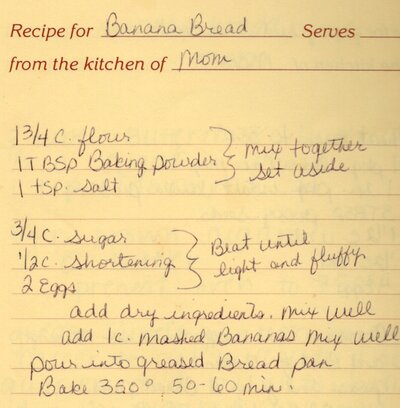 Recipe for Banana Bread Serves
from the kitchen of Mom
1 3/4 c. flour
1 TBSP Baking powder } mix together set aside
1 tsp. salt
3/4 c. sugar
1/2 c. shortening } Beat until light and fluffy
2 Eggs
add dry ingredients. mix well
add 1c. mashed Bananas mix well
pour into greased Bread pan
Bake 350° 50-60 min.